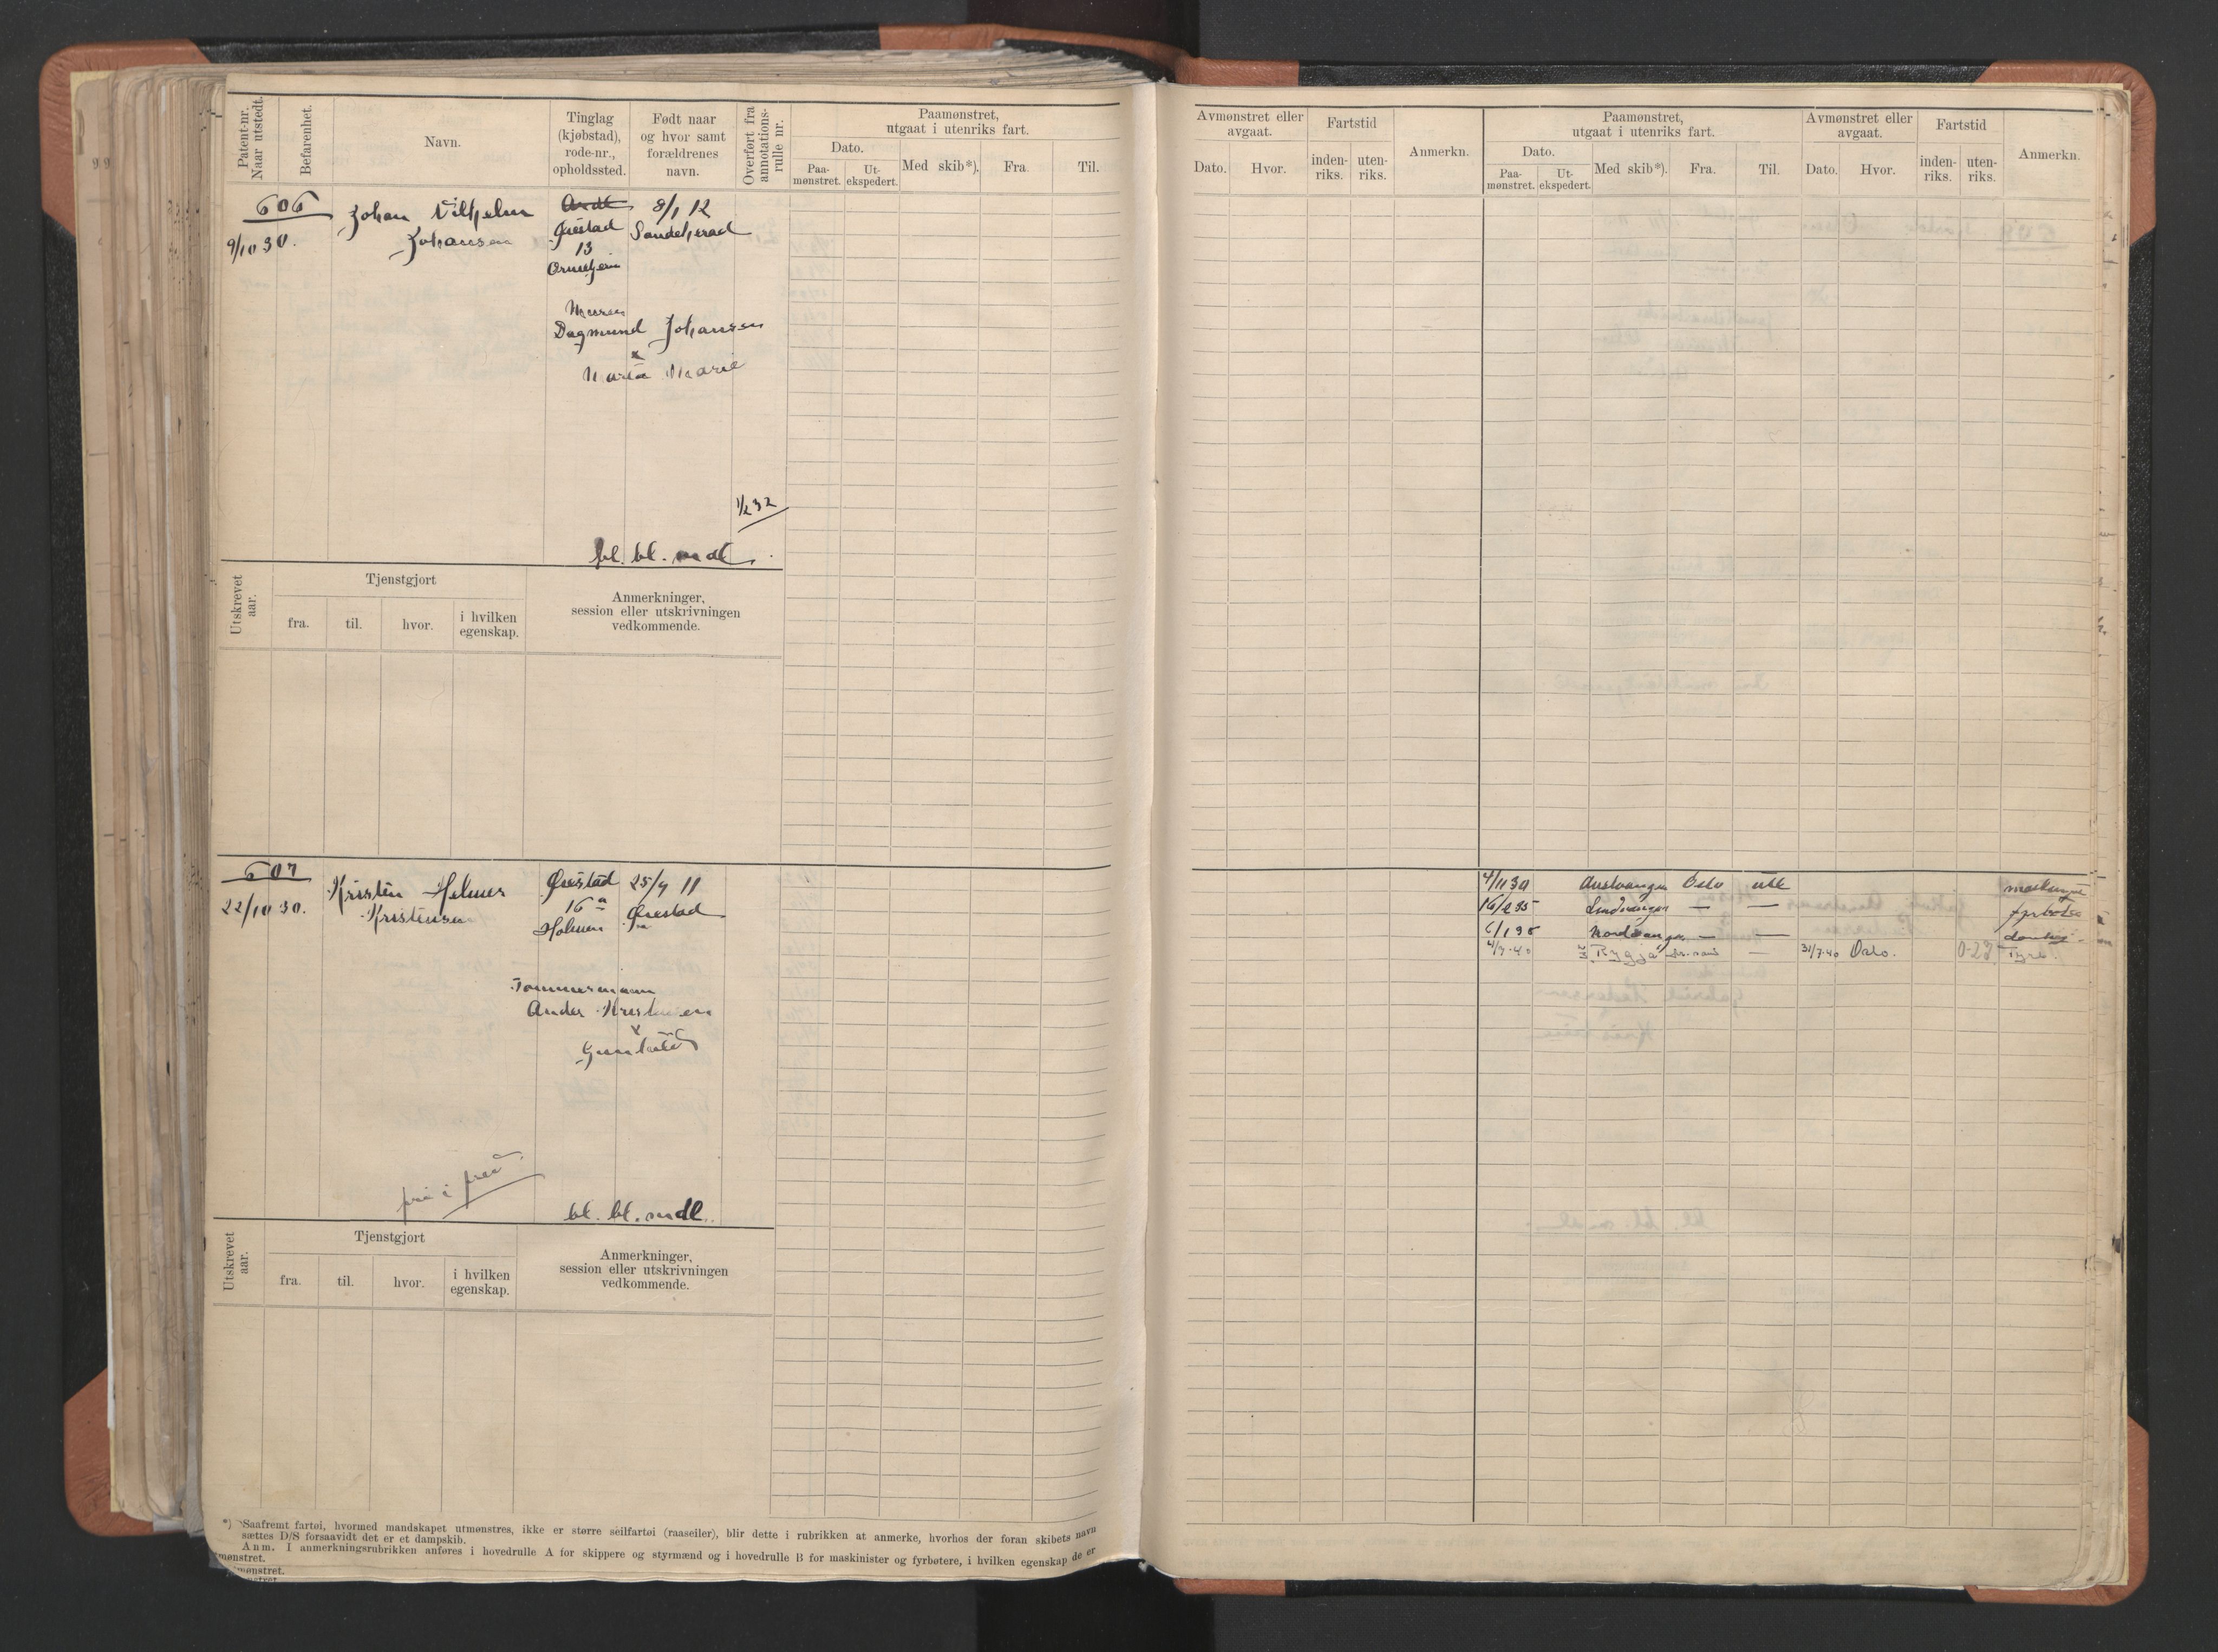 Patent-nr. Naar utstedt.
Befarenhet.
Navn.
Tinglag (kjøbstad), rode-nr., opholdssted.
Født naar og hvor samt forældrenes navn.
Overført fra annotations-rulle nr.
Paamønstret, utgaat i utenriks fart.
Dato.
Paa-mønstret.
Ut-ekspedert.
Med skib*).
Fra.
Til.
606
9/10 30.
Johan Vilhelm
Johansen
Øiestad
13
8/1 12
Sandeherad
Dagmund Johansen
x
Maria Marie
1/2 32
bl. bl. mdl.
Utskrevet aar.
Tjenstgjort
fra.
til.
hvor.
i hvilken egenskap.
Anmerkninger, session eller utskrivningen vedkommende.
607
22/10 30.
Kristen Helmer
Kristensen
Øiestad
16 a
Holmen
25/9 11
Øiestad
Tømmermann
Anders Kristensen
x
bl. bl. mdl.
Utskrevet aar.
Tjenstgjort
fra.
til.
hvor.
i hvilken egenskap.
Anmerkninger, session eller utskrivningen vedkommende.
*) Saafremt fartøi, hvormed mandskapet utmønstres, ikke er større seilfartøi (raaseiler), blir dette i rubrikken at anmerke, hvorhos der foran skibets navn
sættes D/S forsaavidt det er et dampskib.
Anm. I anmerkningsrubrikken anføres i hovedrulle A for skippere og styrmænd og i hovedrulle B for maskinister og fyrbøtere, i hvilken egenskap de er
mønstret.
Avmønstret eller avgaat.
Dato.
Hvor.
Fartstid
inden-riks.
uten-riks.
Anmerkn.
Paamønstret, utgaat i utenriks fart.
Dato.
Paa-mønstret.
Ut-ekspedert.
Med skib*).
Fra.
Til.
Avmønstret eller avgaat.
Dato.
Hvor.
Fartstid
inden-riks.
uten-riks.
Anmerkn.
4/11 30 Austvangen Oslo utl
16/2 35 Lindvangen — — fyrbøter
Nordvangen — —
4/7-40 Rygja — 31/7-40 Oslo. 0-27